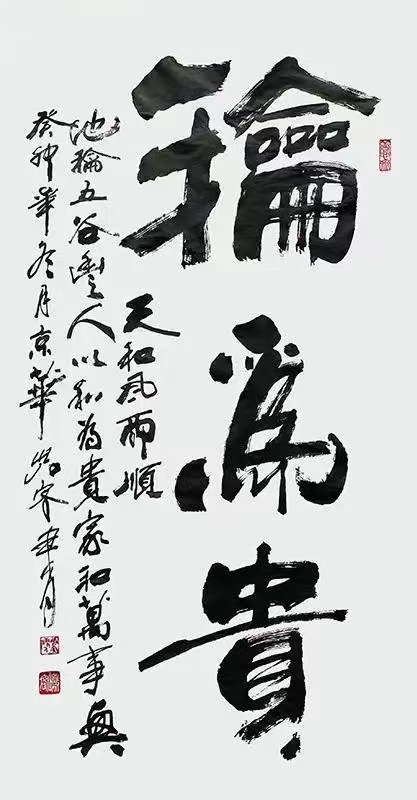 龢為貴
天和风雨順
地龢五谷豐人以和為貴家和萬事興
癸卯年冬月京華